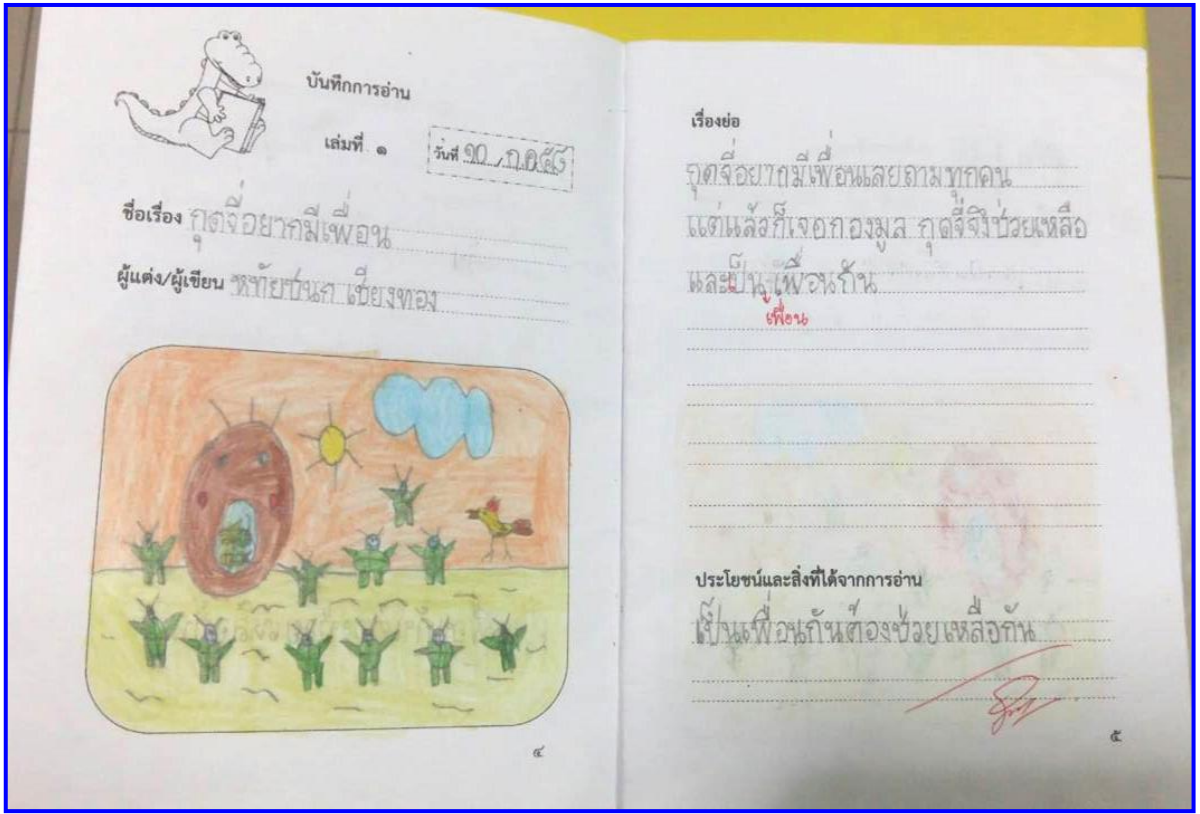 บันทึกการอ่าน
เล่มที่ ๑
วันที่ ๑๐ ก.ค.๕๘
ชื่อเรื่อง กุดจี่อยากมีเพื่อน
ผู้แต่ง/ผู้เขียน หทัยชนก เชียงทอง
๔
เรื่องย่อ
กุดจี่อยากมีเพื่อนเลยถามทุกคน
แต่แล้วก็เจอกองมูล กุดจี่จึงช่วยเหลือ
และเป็น เพื่อนกัน
เพื่อน
ประโยชน์และสิ่งที่ได้จากการอ่าน
เป็นเพื่อนกันต้องช่วยเหลือกัน
๕